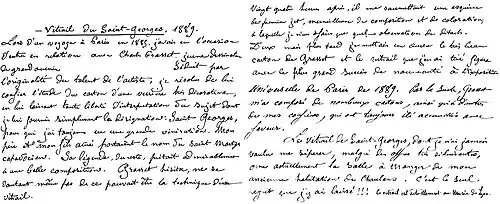 — Vitrail du Saint-Georges, 1889. —
Lors d'un voyage à Paris en 1883, j'avais eu l'occasion
d'entrer en relations avec Eugène Grasset, jeune dessinateur
de grand avenir. Séduit par
l'originalité du talent de l'artiste, je résolus de lui
confier l'étude du carton d'une verrière très décorative,
en lui laissant toute liberté d'interprétation du sujet dont
je lui fournis simplement la désignation: Saint Georges,
pour qui j'ai toujours eu une grande vénération. Mon
père et mon fils aîné portaient le nom du Saint Martyr
cappadocien. Sa légende, du reste, prêtait admirablement
à une belle composition. Grasset hésita, ne se
doutant même pas de ce pouvait être la technique d'un
vitrail.
Vingt quatre heures après, il me soumettait une esquisse
de premier jet, merveilleuse de composition et de coloration,
à laquelle je n'eus à faire que quelques observations de détails.
Deux mois plus tard je mettais en œuvre le très beau
carton de Grasset et le vitrail que j'en ai tiré figura
avec le plus grand succès de nouveauté à l'Exposition
Universelle de Paris de 1889. Par la suite, Grasset
m'a composé de nombreux cartons, ainsi qu'à d'autres
de mes confrères, qui ont toujours été accueillis avec
faveur.
Le Vitrail de Saint-Georges, dont je n'ai jamais
voulu me séparer, malgré des offres très séduisantes,
orne actuellement la Salle à Manger de mon
ancienne habitation de Chaulnes. C'est le seul
regret que j'y ai laissé!!! Ce vitrail est actuellement au Musée de Lyon